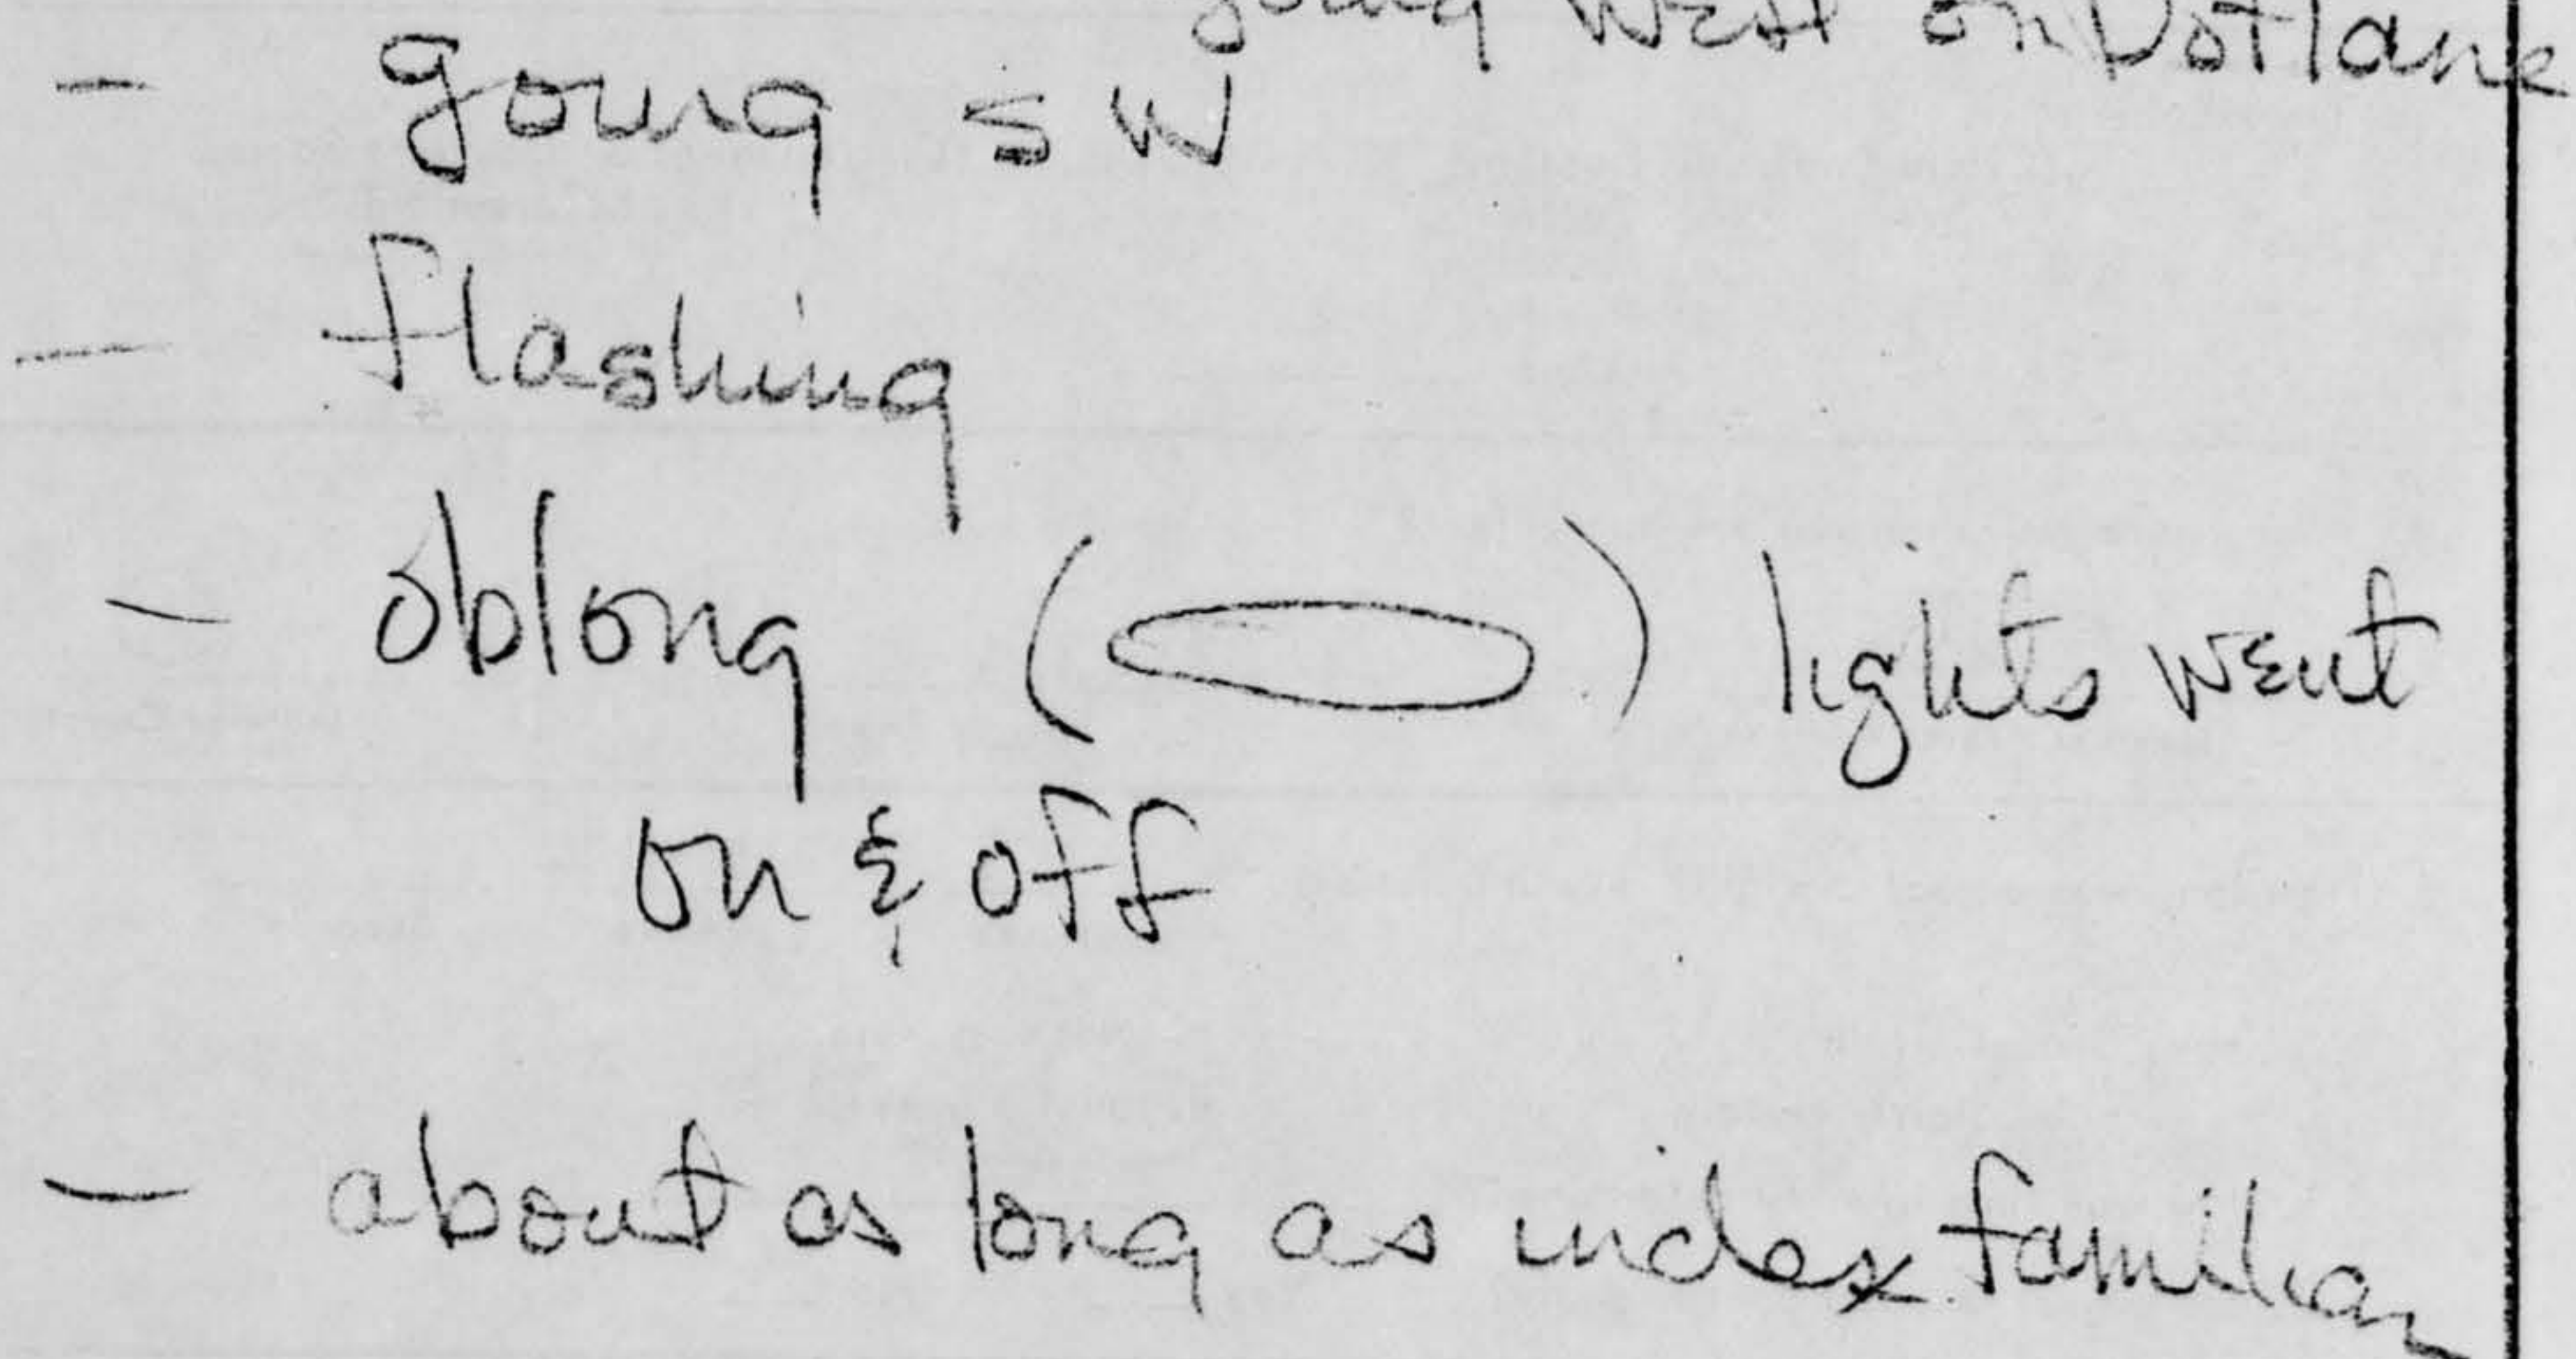 going west on
- going SW
- flashing
- oblong ( ) lights went
on & off
- about as long as index familiar